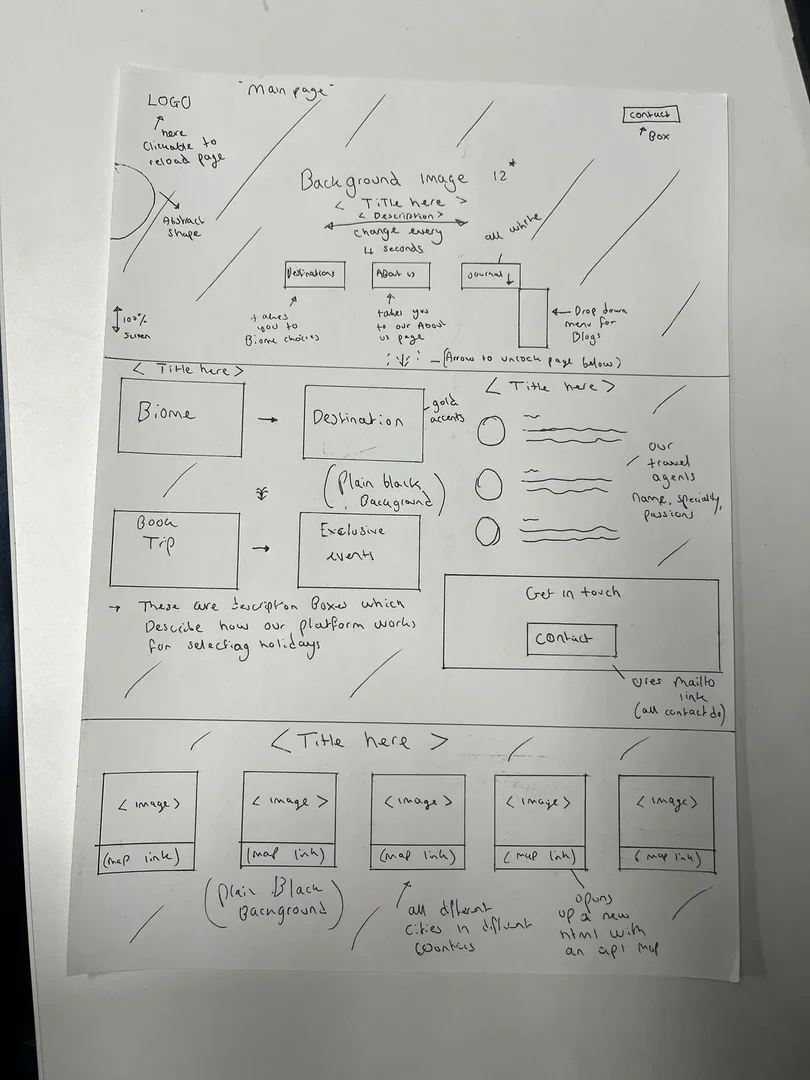 "Main page"
LOGO
here
Clickable to
reload page
contact
Box
Abstract
Shape
Background Image 12*
< Title here >
< Description >
change every
4 seconds
all white
Destinations
About us
Journal
takes
you to
Biome choices
takes you
to our About
us page
Drop down
menu for
Blogs
100%
Screen
(Arrow to unlock page below)
< Title here >
Biome
Destination
gold
accents
(Plain black
Background)
Book
Trip
Exclusive
events
These are description Boxes which
Describe how our platform works
for selecting holidays
< Title here >
our
travel
agents
name, speciality,
passions
Get in touch
contact
uses mailto
link
(all contact do)
< Title here >
< image >
< image >
< image >
< image >
< image >
(map link)
(map link)
(map link)
(map link)
(map link)
(Plain Black
Background)
all different
cities in different
opens
up a new
html with
an api map